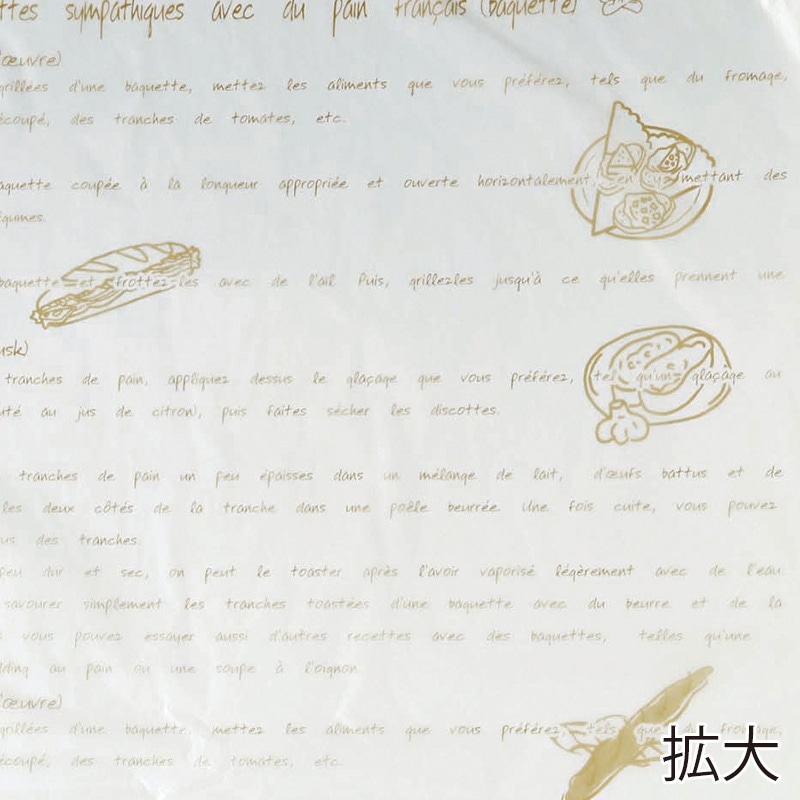 ttes sympathiques avec du pain français (baguette)
'œuvre)
grillées d'une baguette, mettez les aliments que vous préférez, tels que du fromage,
écoupé, des tranches de tomates, etc.
aguette coupée à la longueur appropriée et ouverte horizontalement, en y mettant des
égumes.
baguette et frottez-les avec de l'ail Puis, grillez-les jusqu'à ce qu'elles prennent une
usk)
tranches de pain, appliquez dessus le glaçage que vous préférez, tel qu'un glaçage au
uté au jus de citron), puis faites sécher les discottes.
tranches de pain un peu épaisses dans un mélange de lait, d'œufs battus et de
les deux côtés de la tranche dans une poêle beurrée. Une fois cuite, vous pouvez
us des tranches.
peu dur et sec, on peut le toaster après l'avoir vaporisé légèrement avec de l'eau.
savourer simplement les tranches toastées d'une baguette avec du beurre et de la
s vous pouvez essayer aussi d'autres recettes avec des baguettes, telles qu'une
dding au pain ou une soupe à l'oignon.
'œuvre)
grillées d'une baguette, mettez les aliments que vous préférez, tels que du fromage,
écoupé, des tranches de tomates, etc.
拡大